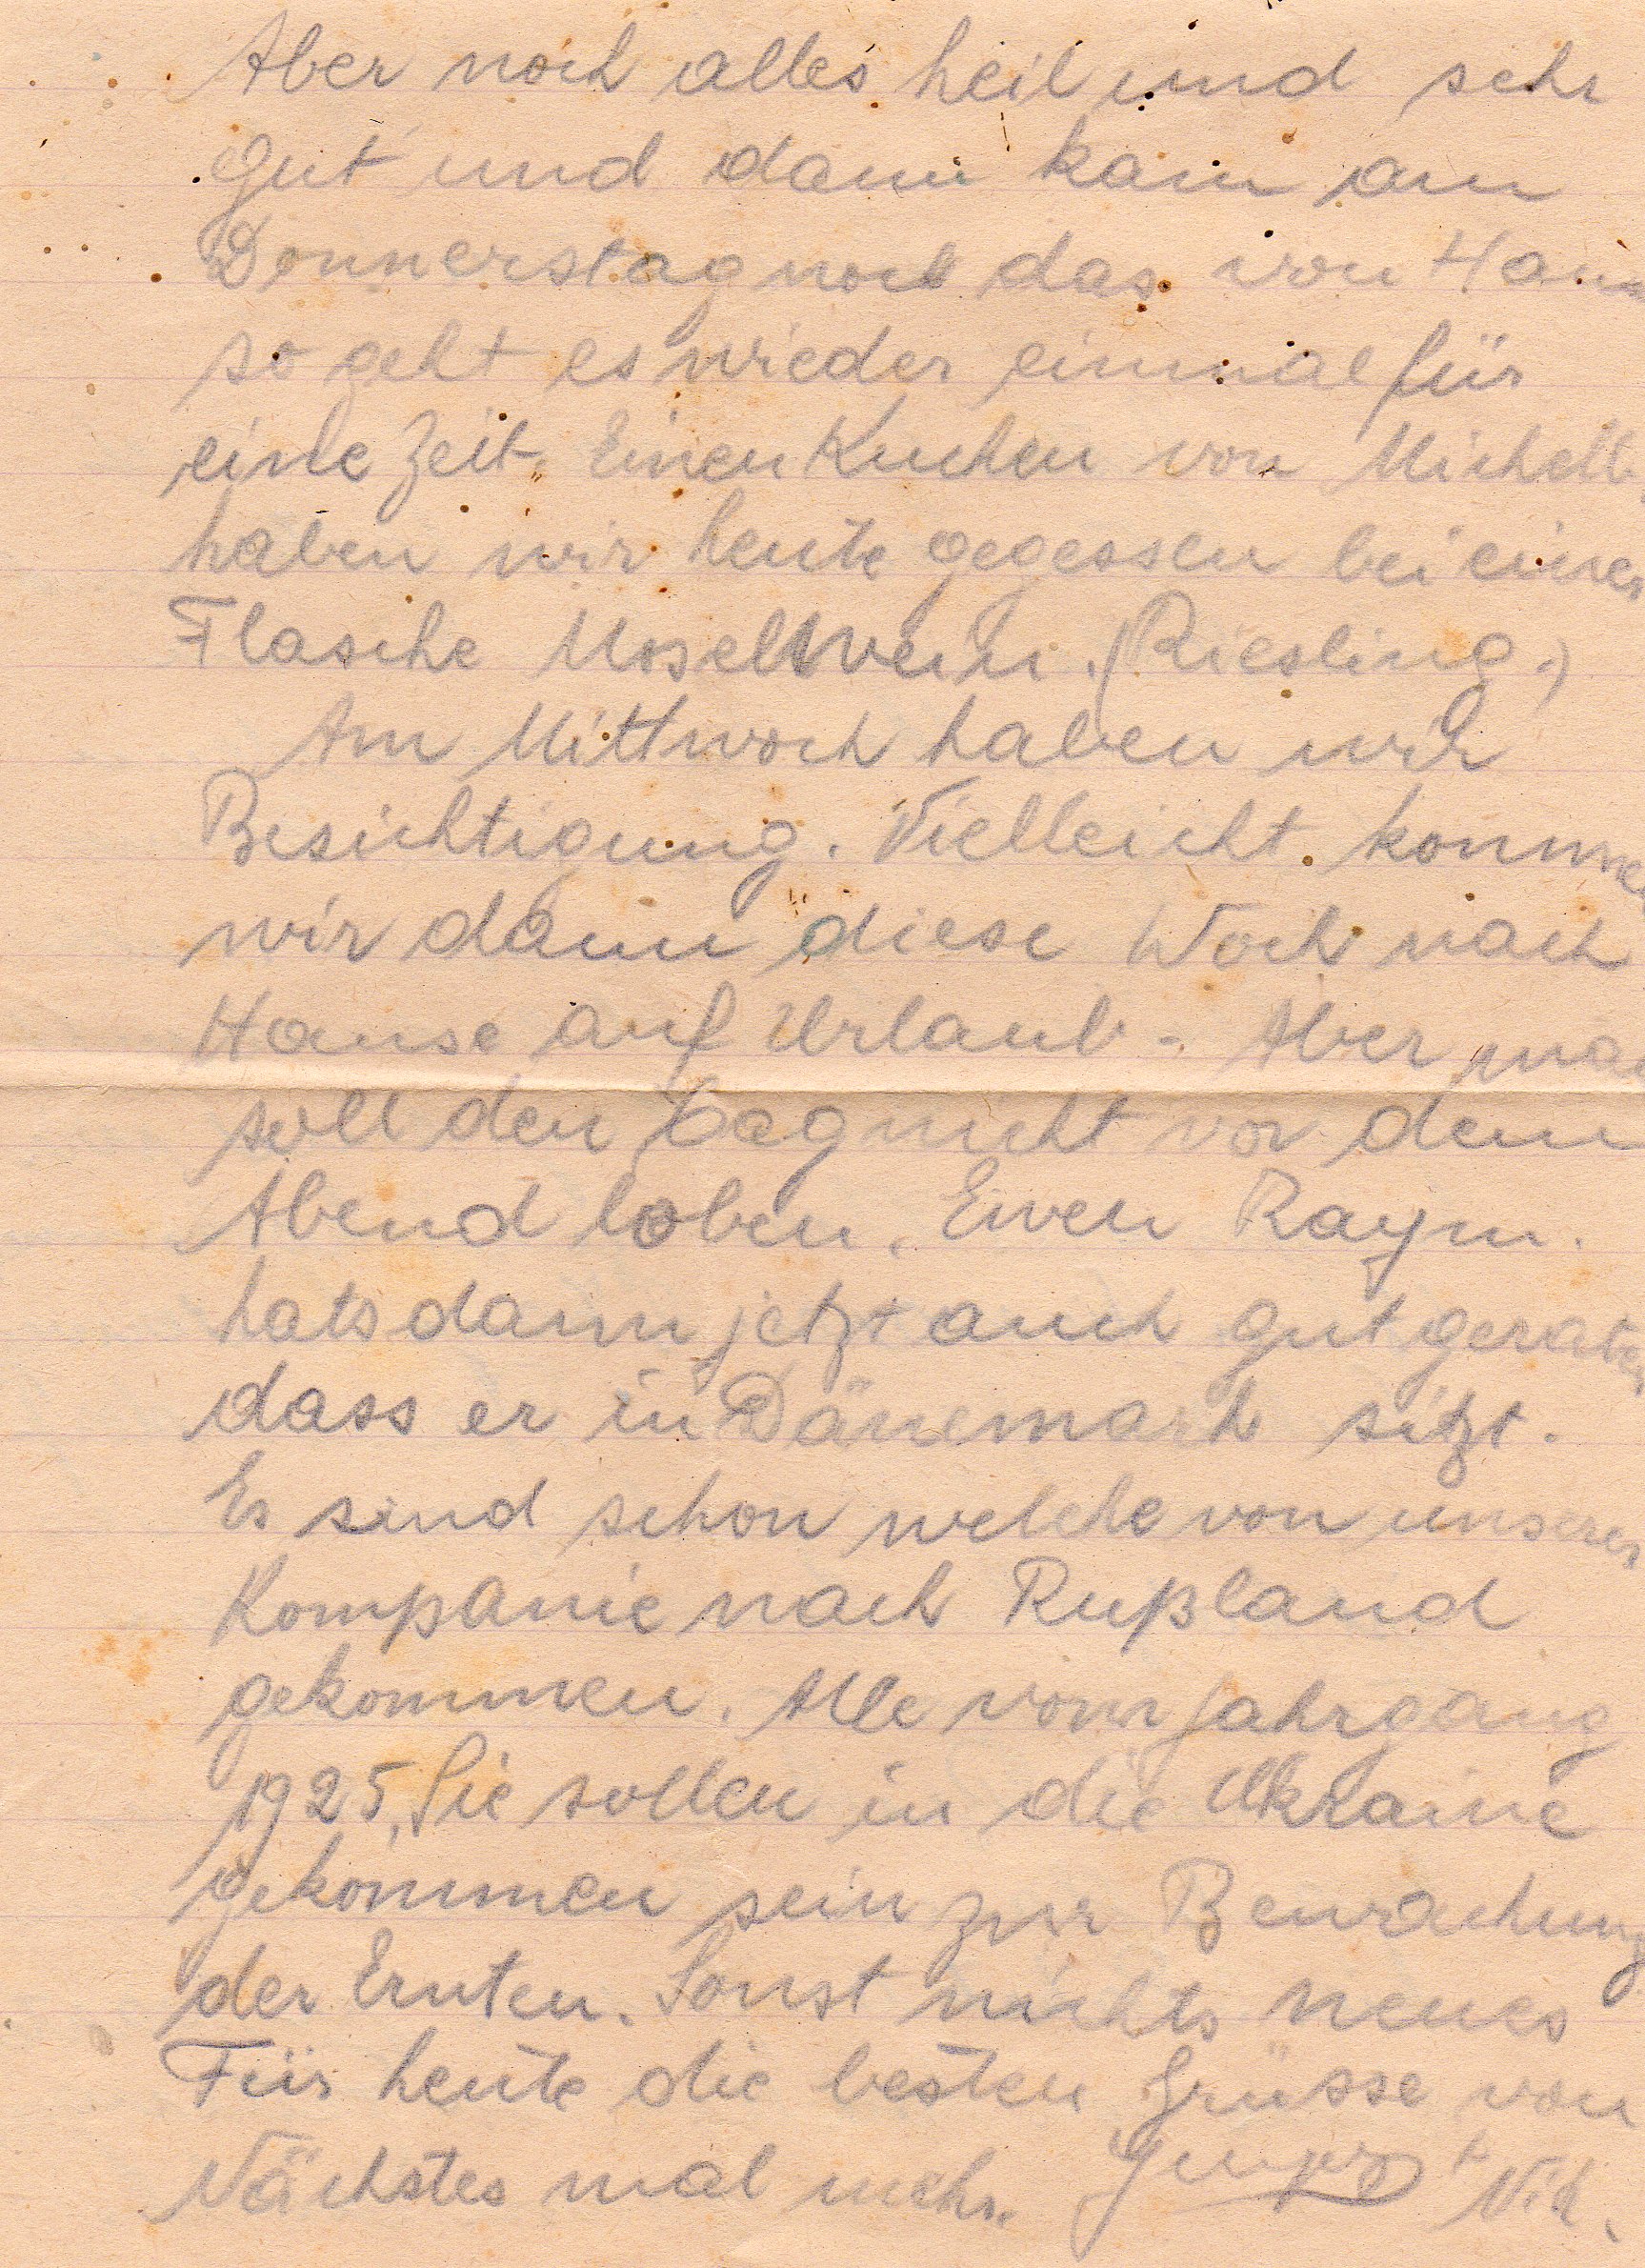 Aber noch alles heil und sehr
gut und dann kam am
Donnerstag noch das von Haus
so geht es wieder einmal für
eine Zeit. Einen Kuchen von Michelb.
haben wir heute gegessen bei einer
Flasche Moselwein. (Riesling.)
Am Mittwoch haben wir
Besichtigung. Vielleicht kommen
wir dann diese Woch nach
Hause auf Urlaub. Aber man
soll den Tag nicht vor dem
Abend loben. Ewen Raym.
hats dann jetzt auch gut geraten
dass er in Dänemark sitzt.
Es sind schon welche von unserer
Kompanie nach Rußland
gekommen. Alle vom Jahrgang
1925. Sie sollen in die Ukraine
gekommen sein zur Bewachung
der Ernten. Sonst nichts neues
Für heute die besten Grüsse von
Nächstes mal mehr. Nik.